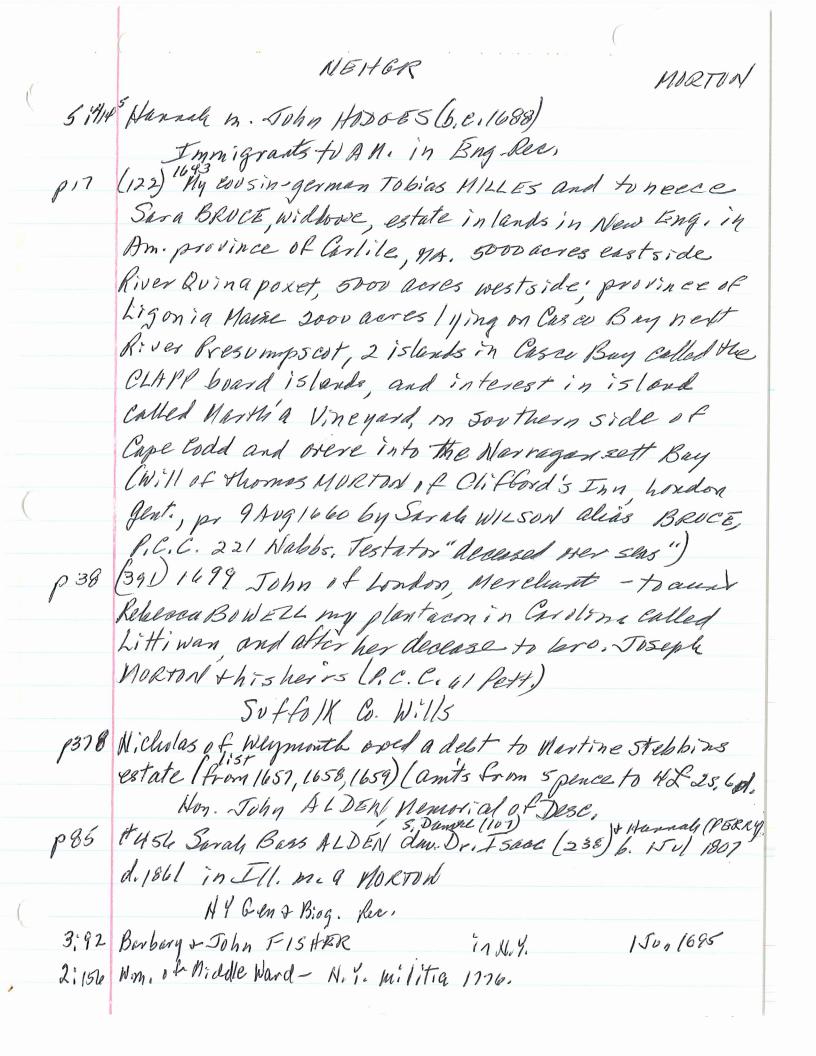 NEHGR
MORTON
5:414⁵ Hannah m. John HODGES (b.c. 1688)
Immigrants to AM. in Eng. Rec.
p17 (122) 1643 "My cousin-german Tobias MILLES and to neece
Sara BRUCE, widdowe, estate in lands in New Eng. in
Am. province of Carlile, MA. 5000 acres eastside
River Quinapoxet, 5000 acres westside; province of
Ligonia Maine 2000 acres lying on Casco Bay next
River Presumpscot, 2 islands in Casco Bay called the
CLAPP board islands, and interest in island
called Martha Vineyard, on Southern side of
Cape Codd and overe into the Narragansett Bay
(Will of Thomas MORTON of Clifford's Inn, London
gent., pr 9 Aug 1660 by Sarah WILSON alias BRUCE,
P.C.C. 221 Nabbs. Testator "deceased over seas")
p38 (391) 1699 John of London, Merchant - to aunt
Rebecca BOWELL my plantacon in Carolina called
Littiwan, and after her decease to bro. Joseph
MORTON & his heirs (P.C.C. 61 Pett.)
Suffolk Co. Wills
p378 Nicholas of Weymouth owed a debt to Martine Stebbins
estate (list from 1657, 1658, 1659) (amts from 5 pence to 4£ 2s, 6d.
Hon. John ALDEN, Memorial of Desc.
p85 #456 Sarah Bass ALDEN dau. Dr. Isaac (238) s. Daniel (107) & Hannah (PERRY) b. 1 Jul 1807
d. 1861 in Ill. m. a MORTON
NY Gen & Biog. Rec.
3:92 Barbary & John FISHER in N.Y. 1 Jun 1695
2:156 Wm. of Middle Ward - N.Y. militia 1776.